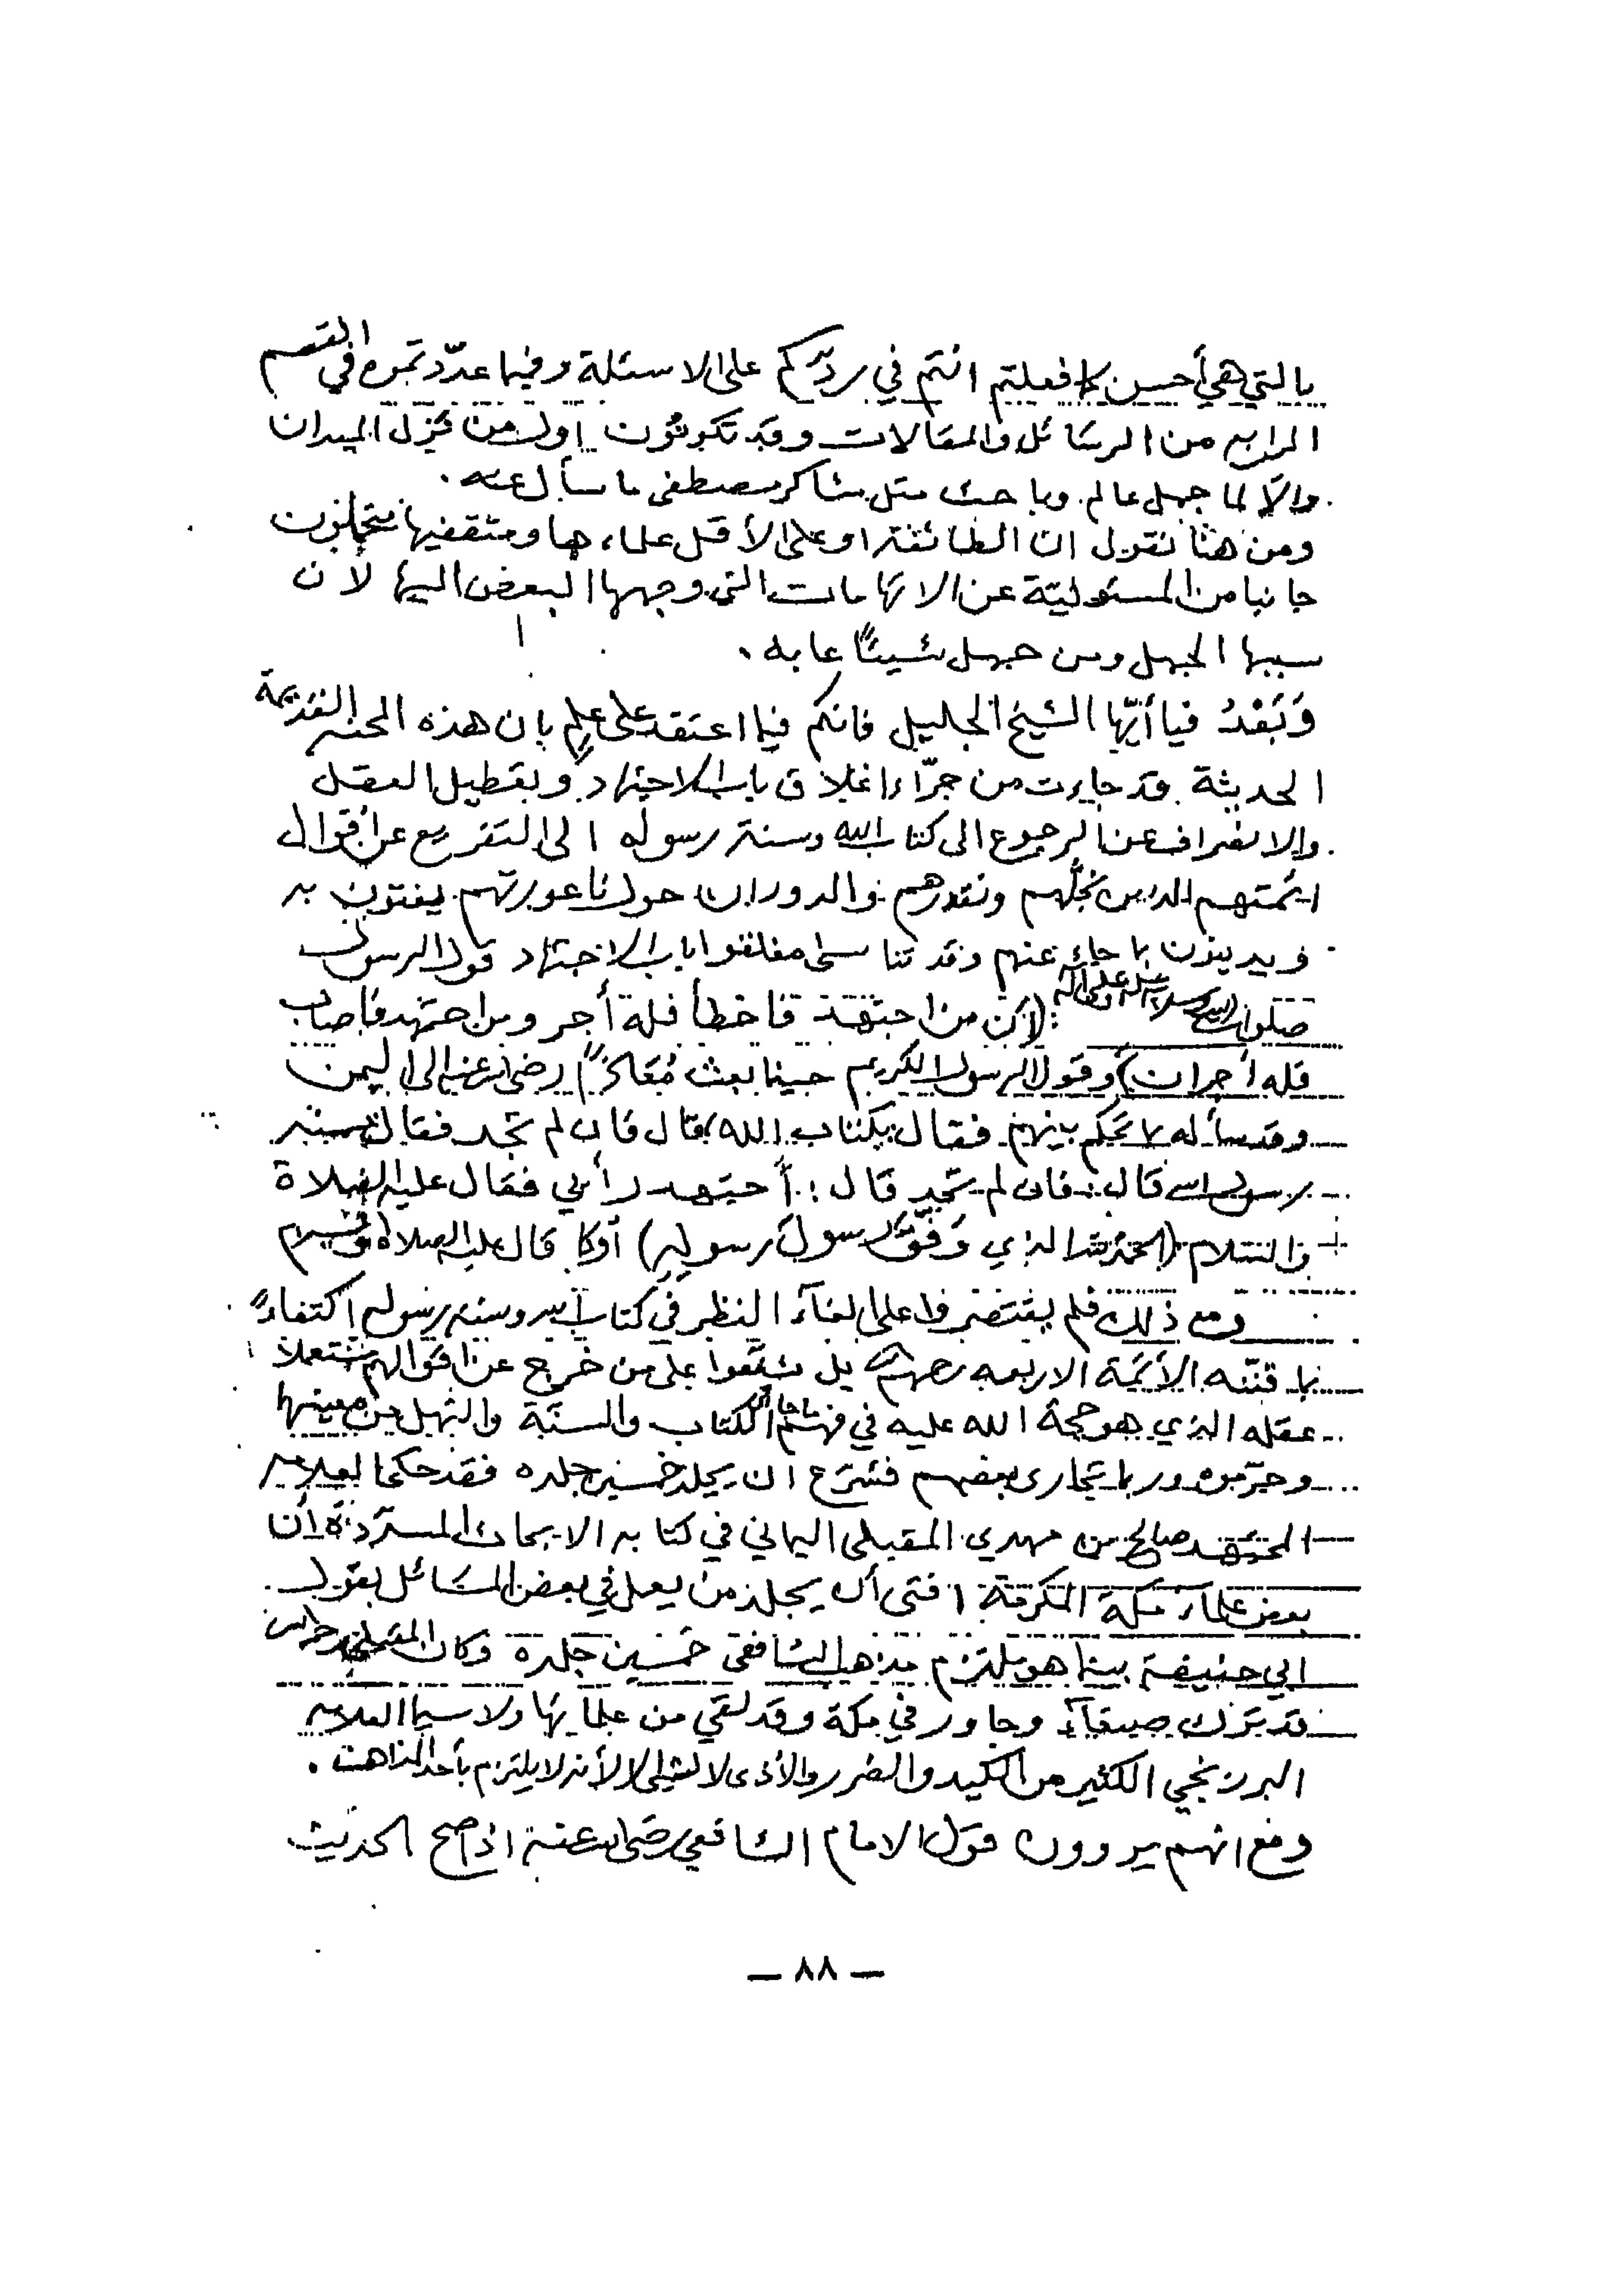 بالتي هي أحسن كما فعلتم انتم في ردّكم على الاسئلة وفيما عدّدتموه في القسم
الرابع من الرسائل والمقالات وقد تكونون اول من نزل الميدان
والاّ لما جهل عالم وباحث مثل شاكر مصطفى ما سأل عنه .
ومن هنا نقول ان الطائفة او على الأقل علماءها ومثقفيها يتحملون
جانبا من المسئوليّة عن الاتهامات التي وجهها البعض اليها لان
سببها الجهل ومن جهل شيئاً عابه .
وَبَعْدُ فيا أيّها الشيخ الجليل فانكم فيما اعتقد على علم بان هذه المحنة القديمة
الحديثة قد جاءت من جرّاء اغلاق باب الاجتهاد وتعطيل العقل
والانصراف عن الرجوع الى كتاب الله وسنة رسوله الى التفريع عن أقوال
ائمتهم الذين نجلّهم ونقدرهم والدوران حول ناعورتهم يفتون به
ويدينون بما جاء عنهم وقد تناسى مغلقوا باب الاجتهاد قول الرسول
صلوات الله وسلامه عليه وعلى آله : (لأن من اجتهد فاخطأ فله أجر ومن اجتهد فاصاب
فله أجران) وقول الرسول الكريم حينما بعث مُعَاذاً رضي الله عنه الى اليمن
وقد سأله بم تحكم بينهم فقال بكتاب الله قال فان لم تجد فقال بسنة
رسول الله قال : فان لم تجد قال : أجتهد رأيي فقال عليه الصلاة
والسلام (الحمد لله الذي وَفّق رسول رسوله) أو كما قال عليه الصلاة والسلام
ومع ذلك فلم يقتصروا على الغاء النظر في كتاب الله وسنة رسوله اكتفاءً
بما قننّه الأئمة الاربعه رحمهم الله بل شنّعوا على من خرج عن اقوالهم مستعملا
عقله الذي هو حجة الله عليه في فهم ما جاء في الكتاب والسنّة والنهل من معينها
وحرّموه وربما تجارى بعضهم فشرّع ان يجلد خمسين جلده فقد حكى العلامه
المجتهد صالح بن مهدي المقبلي اليماني في كتابه الابحاث المسدّدة أن
بعض علماء مكة المكرمة افتى أن يجلد من يعمل في بعض المسائل بقول
ابي حنيفة بينما هو يلتزم مذهب الشافعي خمسين جلدة وكان المقبلي رحمه الله
قد ترك صنعاء وجاور في مكة وقد لقي من علمائها ولا سيما العلامه
البرزنجي الكثير من الكيد والضرر والأذى لا لشيء إلا لأنه لا يلتزم بأحد المذاهب .
ومع انهم يروون قول الامام الشافعي رضي الله عنه اذا صح الحديث
— ٨٨ —